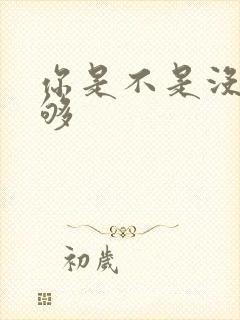 你是不是没
够
初歲